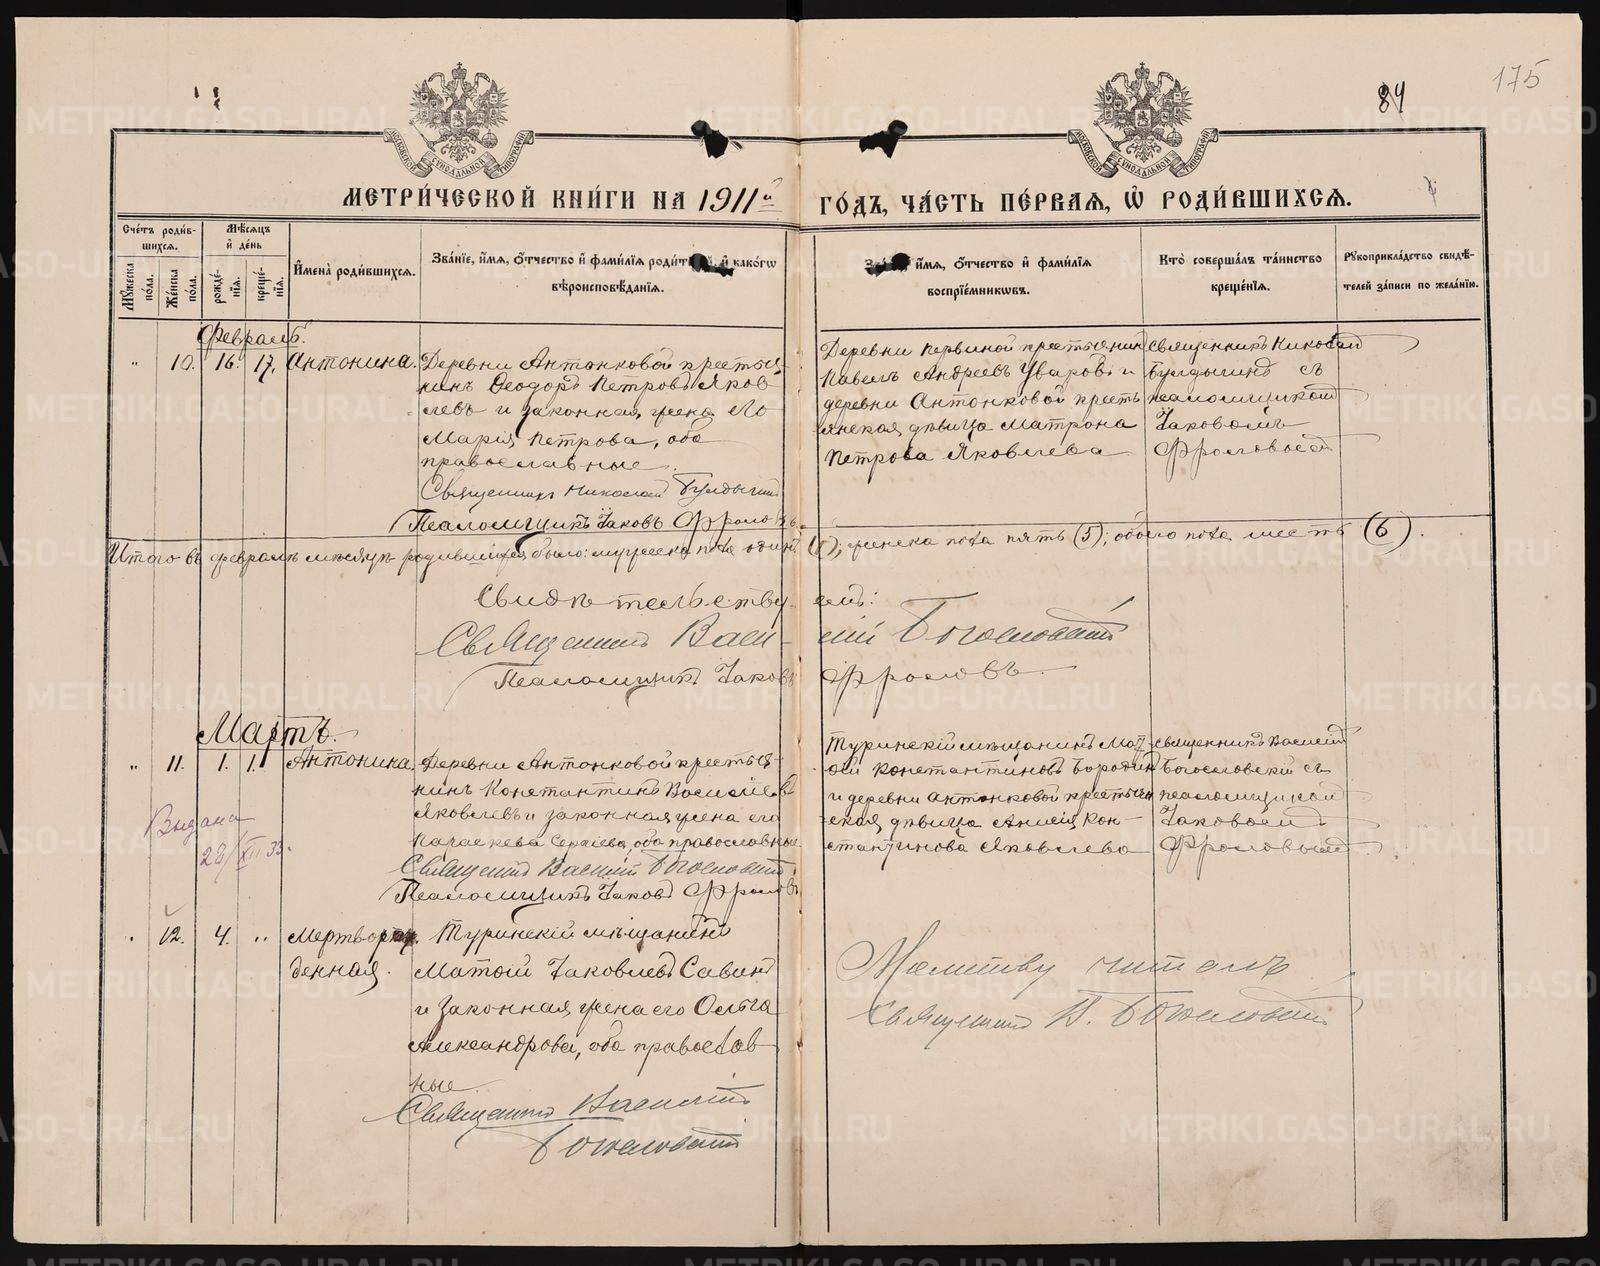 175
84
МЕТРИ́ЧЕСКОЙ КНИ́ГИ НА 1911й ГО́ДЪ, ЧА́СТЬ ПЕ́РВАЯ, Ѡ РОДИ́ВШИХСЯ.
Сче́тъ роди́в-
шихся.
Мѣ́сяцъ
и де́нь
Му́жеска по́ла.
Же́нска по́ла.
рожде́-
нїя.
креще́-
нїя.
Имена̀ роди́вшихся.
Зва́нїе, и́мя, о́тчество и фами́лїя роди́т и како́гѡ
вѣроисповѣ́данїя.
и́мя, о́тчество и фами́лїя
воспрїе́мникѡвъ.
Кто̀ соверша́лъ та́инство
креще́нїя.
Рꙋкоприкла́дство свидѣ́-
телей за́писи по жела́нїю.
Февраль.
" 10. 16. 17. Антонина.
Деревни Антонковой крестья-
нинъ Ѳеодоръ Петровъ Яков-
левъ и законная жена его
Марія Петрова, оба
православные.
Священникъ Николай Булдыгинъ
Псаломщикъ Іаковъ Фроловъ.
Деревни Первиной крестьянин
Павелъ Андреевъ Уваровъ и
деревни Антонковой кресть
янская дѣвица Матрона
Петрова Яковлева
Священникъ Николай
Булдыгинъ съ
псаломщикомъ
Іаковомъ
Фроловымъ
Итого въ февралѣ мѣсяцѣ родившихся было: мужеска пола одинъ (1); женска пола пять (5); обоего пола шесть (6).
Свидѣтельствуемъ:
Священникъ Василій Богословскій
Псаломщикъ Іаковъ Фроловъ.
Мартъ.
" 11. 1. 1. Антонина.
Деревни Антонковой крестья-
нинъ Константинъ Васильевъ
Яковлевъ и законная жена его
Параскева Сергіева, оба православные.
Священникъ Василій Богословскій
Псаломщикъ Іаковъ Фроловъ
Туринскій мѣщанинъ Мат-
ѳій Константиновъ Бородин
и деревни Антонковой крестьян
ская дѣвица Анисія Кон-
стантинова Яковлева
Священникъ Василій
Богословскій съ
псаломщикомъ
Іаковомъ
Фроловымъ
Выдана
28/XII 33.
" 12. 4. " Мертворож-
денная.
Туринскій мѣщанинъ
Матѳій Іаковлевъ Савинъ
и законная жена его Ольга
Александрова, оба православ-
ные
Священникъ Василій
Богословскій
Молитву читалъ
Священникъ В. Богословскій
METRIKI.GASO-URAL.RU